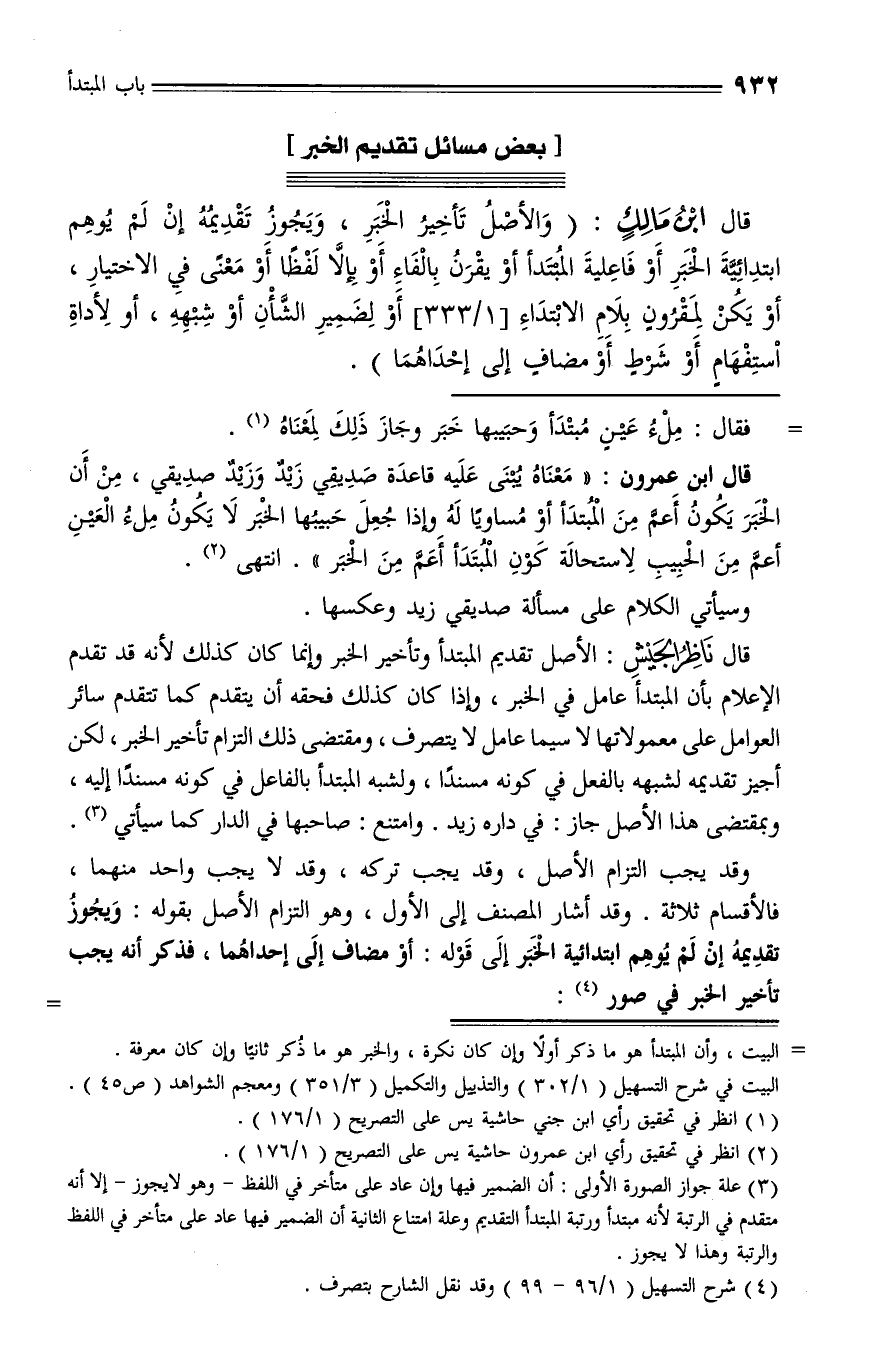 ٩٣٢ باب المبتدأ
[ بعض مسائل تقديم الخبر ]
قال ابْنُ مَالِكٍ : ( وَالأصْلُ تَأخِيرُ الْخَبَرِ ، وَيَجُوزُ تَقْدِيمُهُ إنْ لَمْ يُوهِم
ابتدِائِيَّةَ الْخَبَرِ أَوْ فَاعِليةَ المُبْتَدأ أوْ يقْرَنُ بِالْفَاءِ أَوْ بِإلَّا لَفْظًا أوْ مَعْنًى في الاختيارِ ،
أوْ يَكُنْ لِمَقْرُونٍ بِلَامِ الابْتدَاءِ [٣٣٣/١] أَوْ لِضَمِيرِ الشَّأْنِ أوْ شِبْهِهِ ، أو لِأداةِ
اْستِفْهَامٍ أَوْ شَرْطٍ أَوْ مضافٍ إلى إحْدَاهُمَا ) .
= فقال : مِلْءُ عَيْنٍ مُبتْدَأ وَحبَيبها خَبَر وجَازَ ذَلِكَ لِمَعْنَاهُ (١) .
قال ابن عمرون : « مَعْنَاهُ يُبْنَى عَلَيه قاعدَة صَدِيقِي زَيْدٌ وَزَيْدٌ صديِقي ، مِنْ أَن
الخَبَرَ يَكُونُ أَعمَّ مِنَ الْمُبتدَأ أوْ مُساويًا لَهُ وإذا جُعِلَ حَبيبُها الخْبَر لَا يَكُونُ مِلءُ الْعَيْنِ
أعمَّ مِنَ الْحبِيبِ لِاستحالَة كَوْنِ الْمُبتَدَأ أَعَمَّ مِنَ الْخبَر » . انتهى (٢) .
وسيأتي الكلام على مسألة صديقي زيد وعكسها .
قال نَاظِرُ الجَيْشِ : الأصل تقديم المبتدأ وتأخير الخبر وإنما كان كذلك لأنه قد تقدم
الإعلام بأن المبتدأ عامل في الخبر ، وإذا كان كذلك فحقه أن يتقدم كما تتقدم سائر
العوامل على معمولاتها لا سيما عامل لا يتصرف ، ومقتضى ذلك التزام تأخير الخبر ، لكن
أجيز تقديمه لشبهه بالفعل في كونه مسندًا ، ولشبه المبتدأ بالفاعل في كونه مسندًا إليه ،
وبمقتضى هذا الأصل جاز : في داره زيد . وامتنع : صاحبها في الدار كما سيأتي (٣) .
وقد يجب التزام الأصل ، وقد يجب تركه ، وقد لا يجب واحد منهما ،
فالأقسام ثلاثة . وقد أشار المصنف إلى الأول ، وهو التزام الأصل بقوله : وَيجُوزُ
تقدِيمهُ إنْ لَمْ يُوهِم ابتدائية الْخَبَر إلَى قَوْله : أوْ مضاف إلَى إحداهُما ، فذكر أنه يجب
تأخير الخبر في صور (٤) : =
= البيت ، وأن المبتدأ هو ما ذكر أولًا وإن كان نكرة ، والخبر هو ما ذُكر ثانيًا وإن كان معرفة .
البيت في شرح التسهيل ( ٣٠٢/١ ) والتذييل والتكميل ( ٣٥١/٣ ) ومعجم الشواهد ( ص٤٥ ) .
(١) انظر في تحقيق رأي ابن جني حاشية يس على التصريح ( ١٧٦/١ ) .
(٢) انظر في تحقيق رأي ابن عمرون حاشية يس على التصريح ( ١٧٦/١ ) .
(٣) علة جواز الصورة الأولى : أن الضمير فيها وإن عاد على متأخر في اللفظ - وهو لايجوز - إلا أنه
متقدم في الرتبة لأنه مبتدأ ورتبة المبتدأ التقديم وعلة امتناع الثانية أن الضمير فيها عاد على متأخر في اللفظ
والرتبة وهذا لا يجوز .
(٤) شرح التسهيل ( ٩٦/١ - ٩٩ ) وقد نقل الشارح بتصرف .